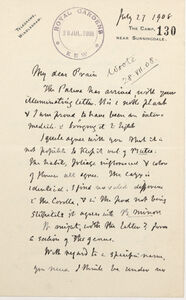 TELEGRAMS, WINDLESHAM.
ROYAL GARDENS
28 JUL. 1908
KEW
July 27 1908
THE CAMP, 130
NEAR SUNNINGDALE.
My dear Prain
Wrote
28.VII.08.
The Puya has arrived with your
illuminating letter. It is a noble plant
& I am proud to have been an inter-
mediate in bringing it to light
I quite agree with you that it is
not possible to keep it out of
The habit, foliage & color
of flower all agree. The calyx is
identical. I find no valid difference
in the Corolla, & in the pod not being
stipitate it agrees with B. minor
B. , with the letter ? from
a section of the genus.
With regard to a specific name,
you need I think be under no